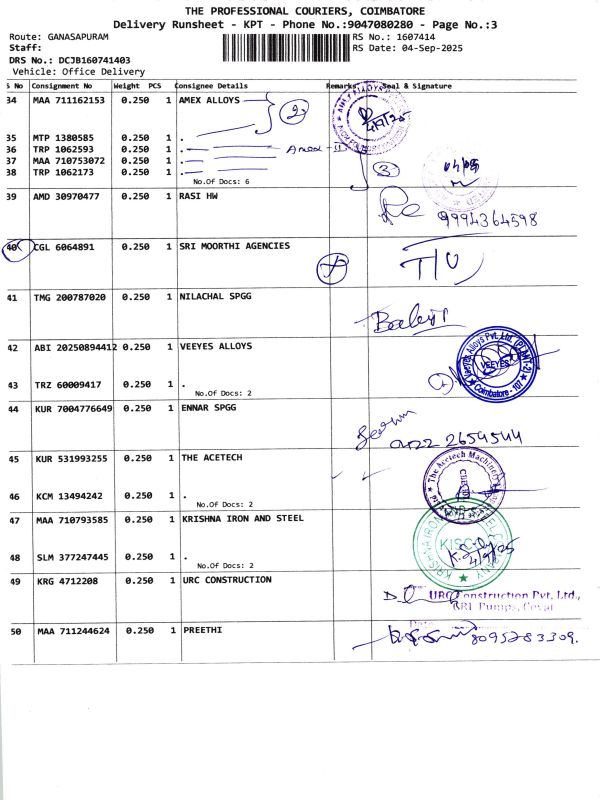 THE PROFESSIONAL COURIERS, COIMBATORE
Delivery Runsheet - KPT - Phone No.:9047080280 - Page No.:3
Route: GANASAPURAM
RS No.: 1607414
Staff:
RS Date: 04-Sep-2025
DRS No.: DCJB160741403
Vehicle: Office Delivery
S No Consignment No Weight PCS Consignee Details Remarks Seal & Signature
34 MAA 711162153 0.250 1 AMEX ALLOYS
2
35 MTP 1380585 0.250 1 .
36 TRP 1062593 0.250 1 .
37 MAA 710753072 0.250 1 .
38 TRP 1062173 0.250 1 .
3
No.Of Docs: 6
39 AMD 30970477 0.250 1 RASI HW
9994364598
40 CGL 6064891 0.250 1 SRI MOORTHI AGENCIES
41 TMG 200787020 0.250 1 NILACHAL SPGG
42 ABI 20250894412 0.250 1 VEEYES ALLOYS
Veeyes Alloys Pvt. Ltd (PLANT-2)
VEEYES
Coimbatore - 107
43 TRZ 60009417 0.250 1 .
No.Of Docs: 2
44 KUR 7004776649 0.250 1 ENNAR SPGG
0422 2654544
45 KUR 531993255 0.250 1 THE ACETECH
The Acetech Machinery
46 KCM 13494242 0.250 1 .
No.Of Docs: 2
47 MAA 710793585 0.250 1 KRISHNA IRON AND STEEL
48 SLM 377247445 0.250 1 .
4/9/25
No.Of Docs: 2
49 KRG 4712208 0.250 1 URC CONSTRUCTION
URC Construction Pvt. Ltd.,
50 MAA 711244624 0.250 1 PREETHI
8095283309.